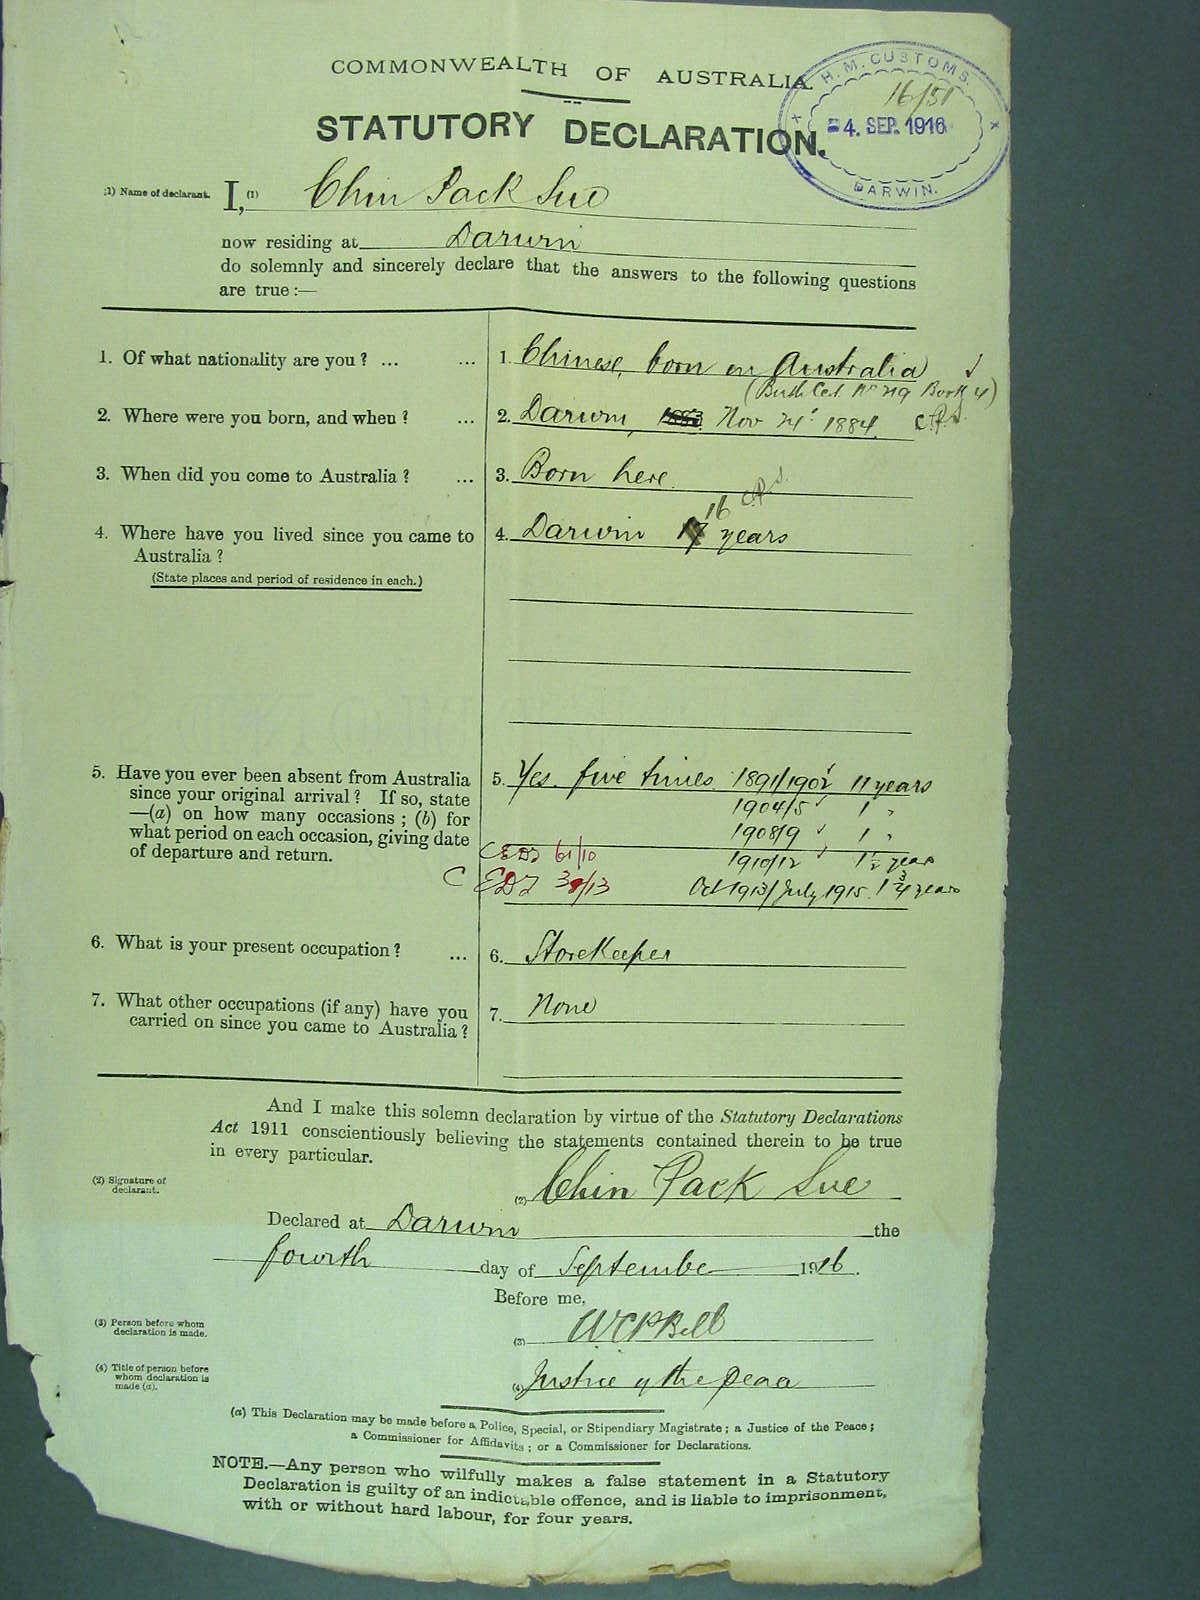 COMMONWEALTH OF AUSTRALIA.
H. M. CUSTOMS.
16/51
4. SEP. 1916
DARWIN.
STATUTORY DECLARATION.
(1) Name of declarant. I, (1) Chin Pack Sue
now residing at Darwin
do solemnly and sincerely declare that the answers to the following questions
are true:—
1. Of what nationality are you? ... ... 1. Chinese, born in Australia
(Birth Cert. No 719 Book 4)
2. Where were you born, and when? ... 2. Darwin, 1883 Nov 24 1884.
3. When did you come to Australia? ... 3. Born here.
16
4. Where have you lived since you came to 4. Darwin 17 years
Australia?
(State places and period of residence in each.)
5. Have you ever been absent from Australia 5. Yes. five times. 1891/1902 11 years
since your original arrival? If so, state 1904/5 1 "
—(a) on how many occasions; (b) for 1908/9 1 "
what period on each occasion, giving date CEDT 61/10 1910/12 1½ year
of departure and return.
CEDT 39/13 Oct 1913/July 1915. 1¾ years
6. What is your present occupation? ... 6. Storekeeper
7. What other occupations (if any) have you 7. None
carried on since you came to Australia?
And I make this solemn declaration by virtue of the Statutory Declarations
Act 1911 conscientiously believing the statements contained therein to be true
in every particular.
(2) Signature of
declarant.
(2) Chin Pack Sue
Declared at Darwin the
fourth day of September 1916.
Before me,
(3) Person before whom
declaration is made.
(3) WCPBell
(4) Title of person before
whom declaration is
made (a).
(4) Justice of the peace
(a) This Declaration may be made before a Police, Special, or Stipendiary Magistrate; a Justice of the Peace;
a Commissioner for Affidavits; or a Commissioner for Declarations.
NOTE.—Any person who wilfully makes a false statement in a Statutory
Declaration is guilty of an indictable offence, and is liable to imprisonment,
with or without hard labour, for four years.